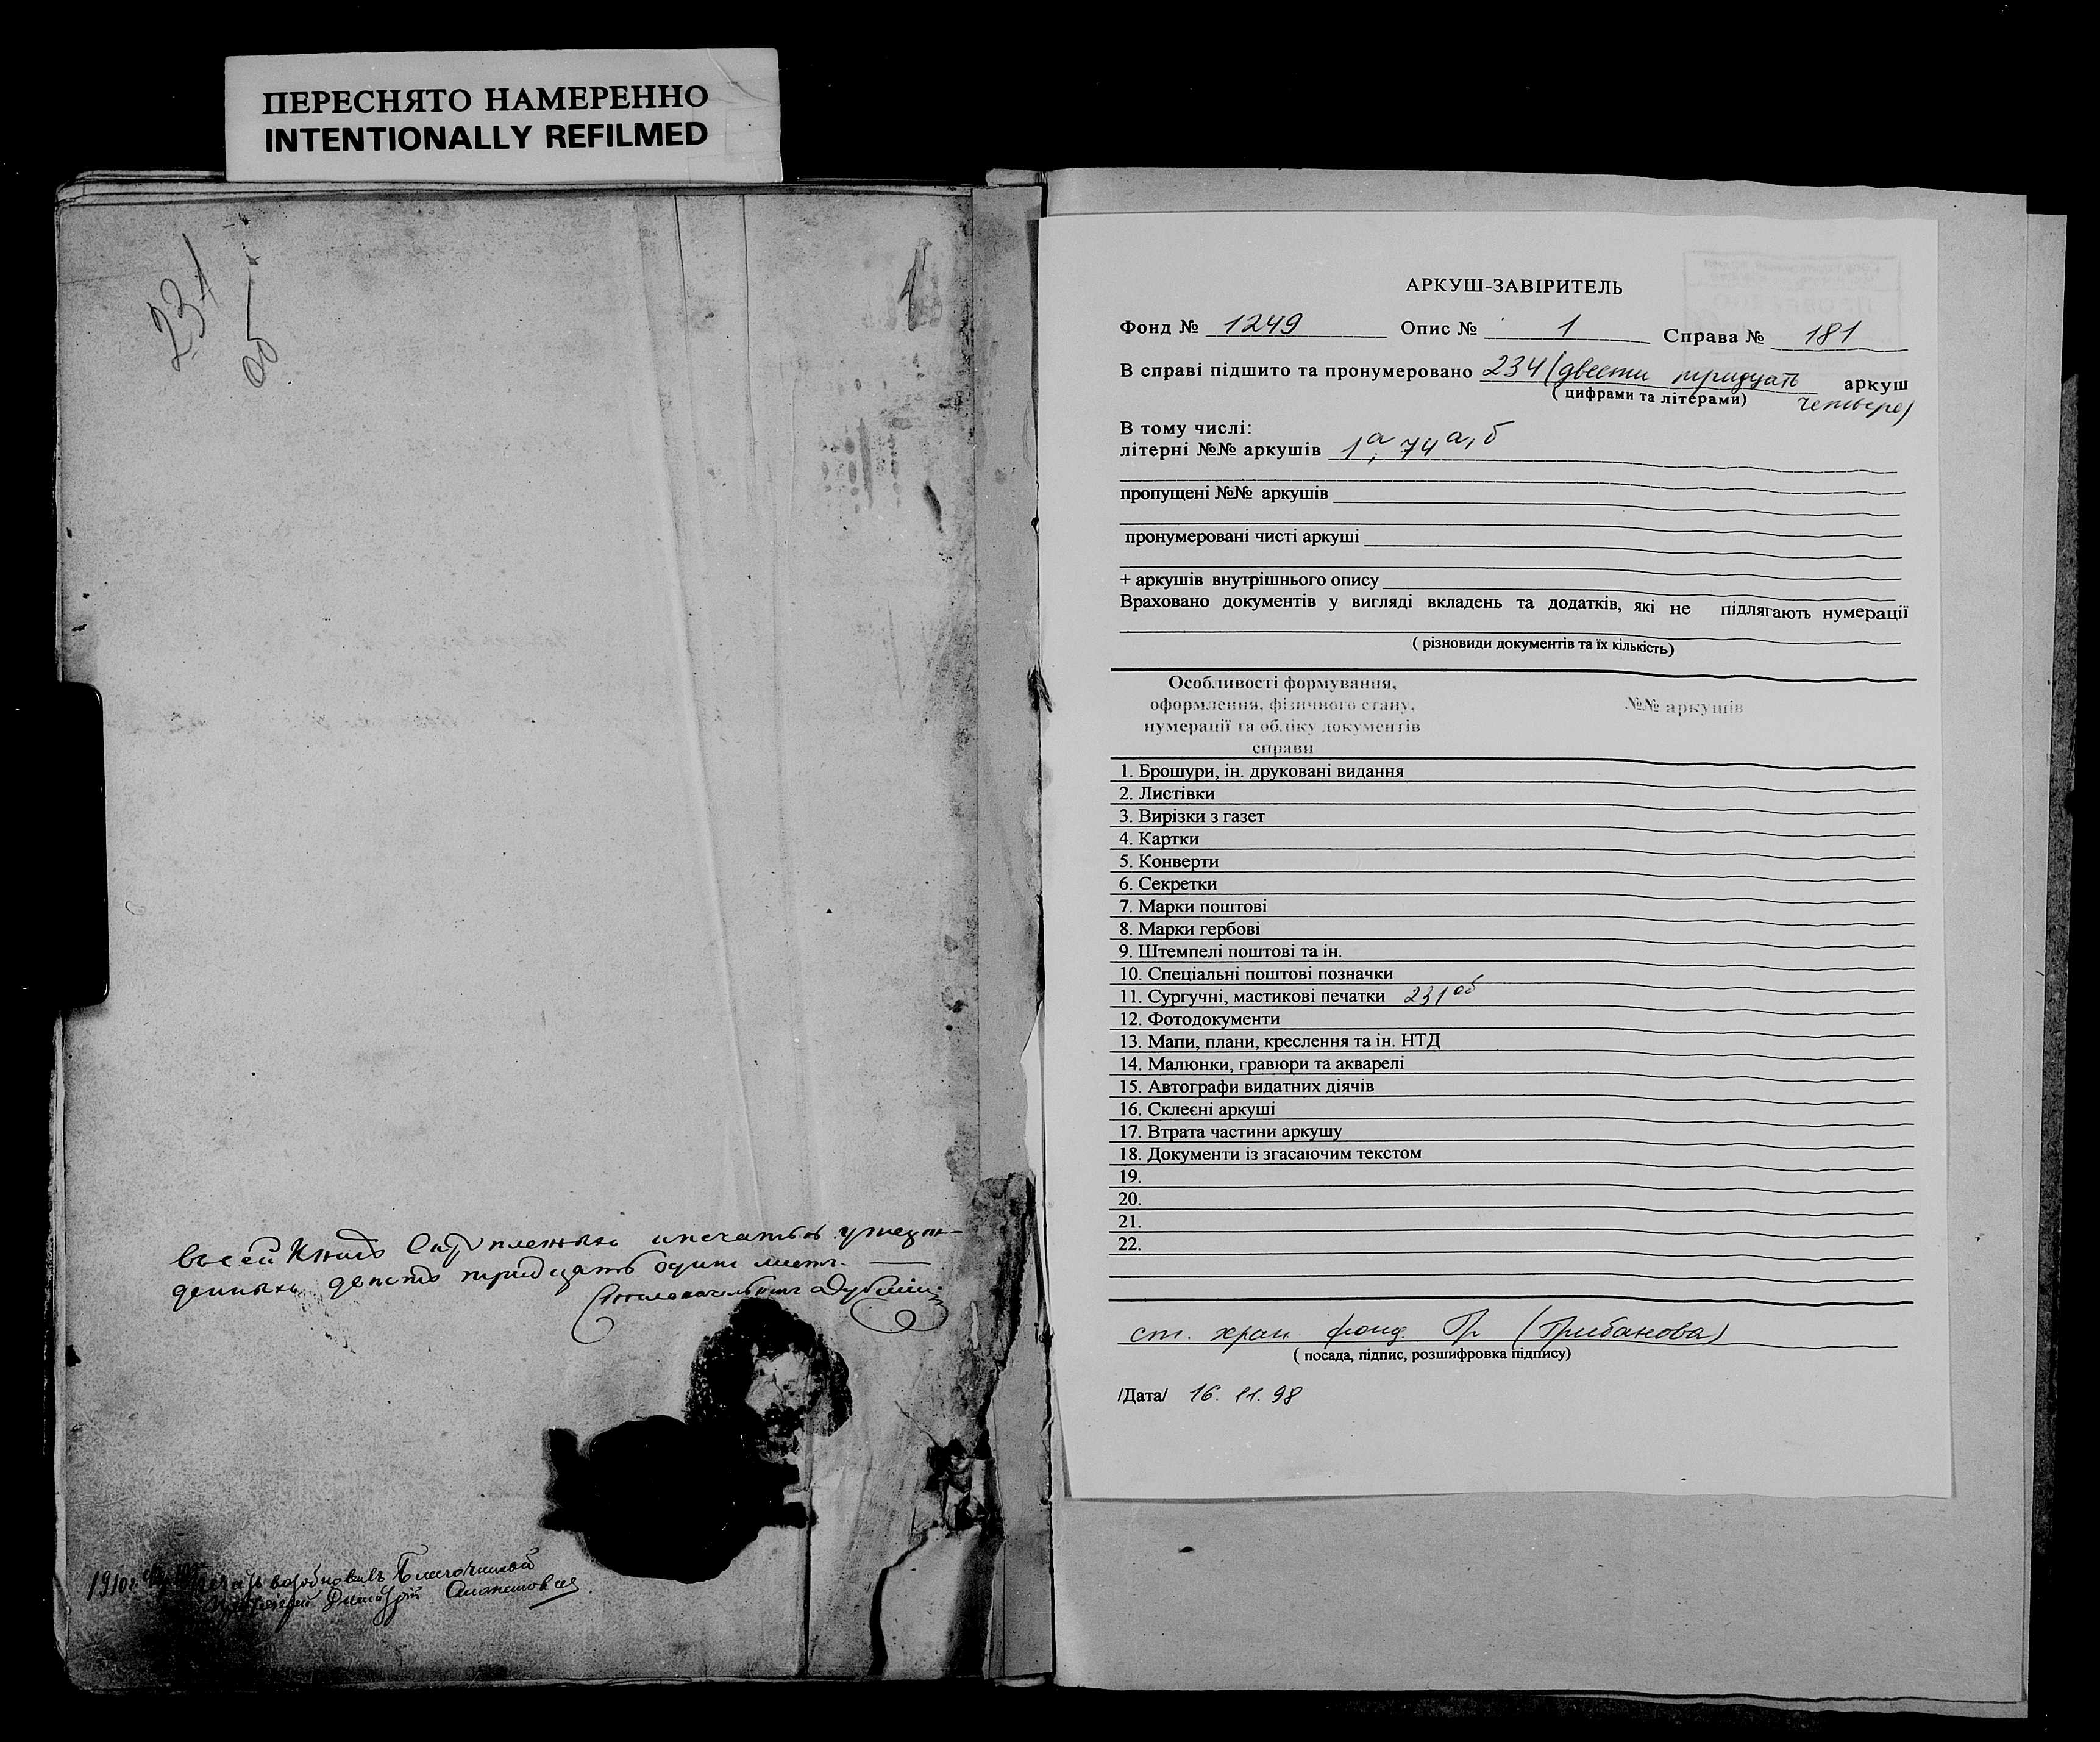 ПЕРЕСНЯТО НАМЕРЕННО
INTENTIONALLY REFILMED
231
об
В сей Книге Скрепленныхъ и печатью утверж-
денныхъ двести тридцать одинъ листъ.
Столоначальникъ
1910 г. печать возобновилъ Благочинный
Димитрій
АРКУШ-ЗАВІРИТЕЛЬ
Фонд № 1249 Опис № 1 Справа № 181
В справі підшито та пронумеровано 234 (двести тридцать аркуш
( цифрами та літерами) четыре)
В тому числі:
літерні №№ аркушів 1а, 74 а, б
пропущені №№ аркушів
пронумеровані чисті аркуші
+ аркушів внутрішнього опису
Враховано документів у вигляді вкладень та додатків, які не підлягають нумерації
( різновиди документів та їх кількість)
Особливості формування,
оформлення, фізичного стану, №№ аркушів
нумерації та обліку документів
справи
1. Брошури, ін. друковані видання
2. Листівки
3. Вирізки з газет
4. Картки
5. Конверти
6. Секретки
7. Марки поштові
8. Марки гербові
9. Штемпелі поштові та ін.
10. Спеціальні поштові позначки
11. Сургучні, мастикові печатки 231 об
12. Фотодокументи
13. Мапи, плани, креслення та ін. НТД
14. Малюнки, гравюри та акварелі
15. Автографи видатних діячів
16. Склеєні аркуші
17. Втрата частини аркушу
18. Документи із згасаючим текстом
19.
20.
21.
22.
ст. хран фонд. Гр (Грибанова)
( посада, підпис, розшифровка підпису)
/Дата/ 16. 11. 98